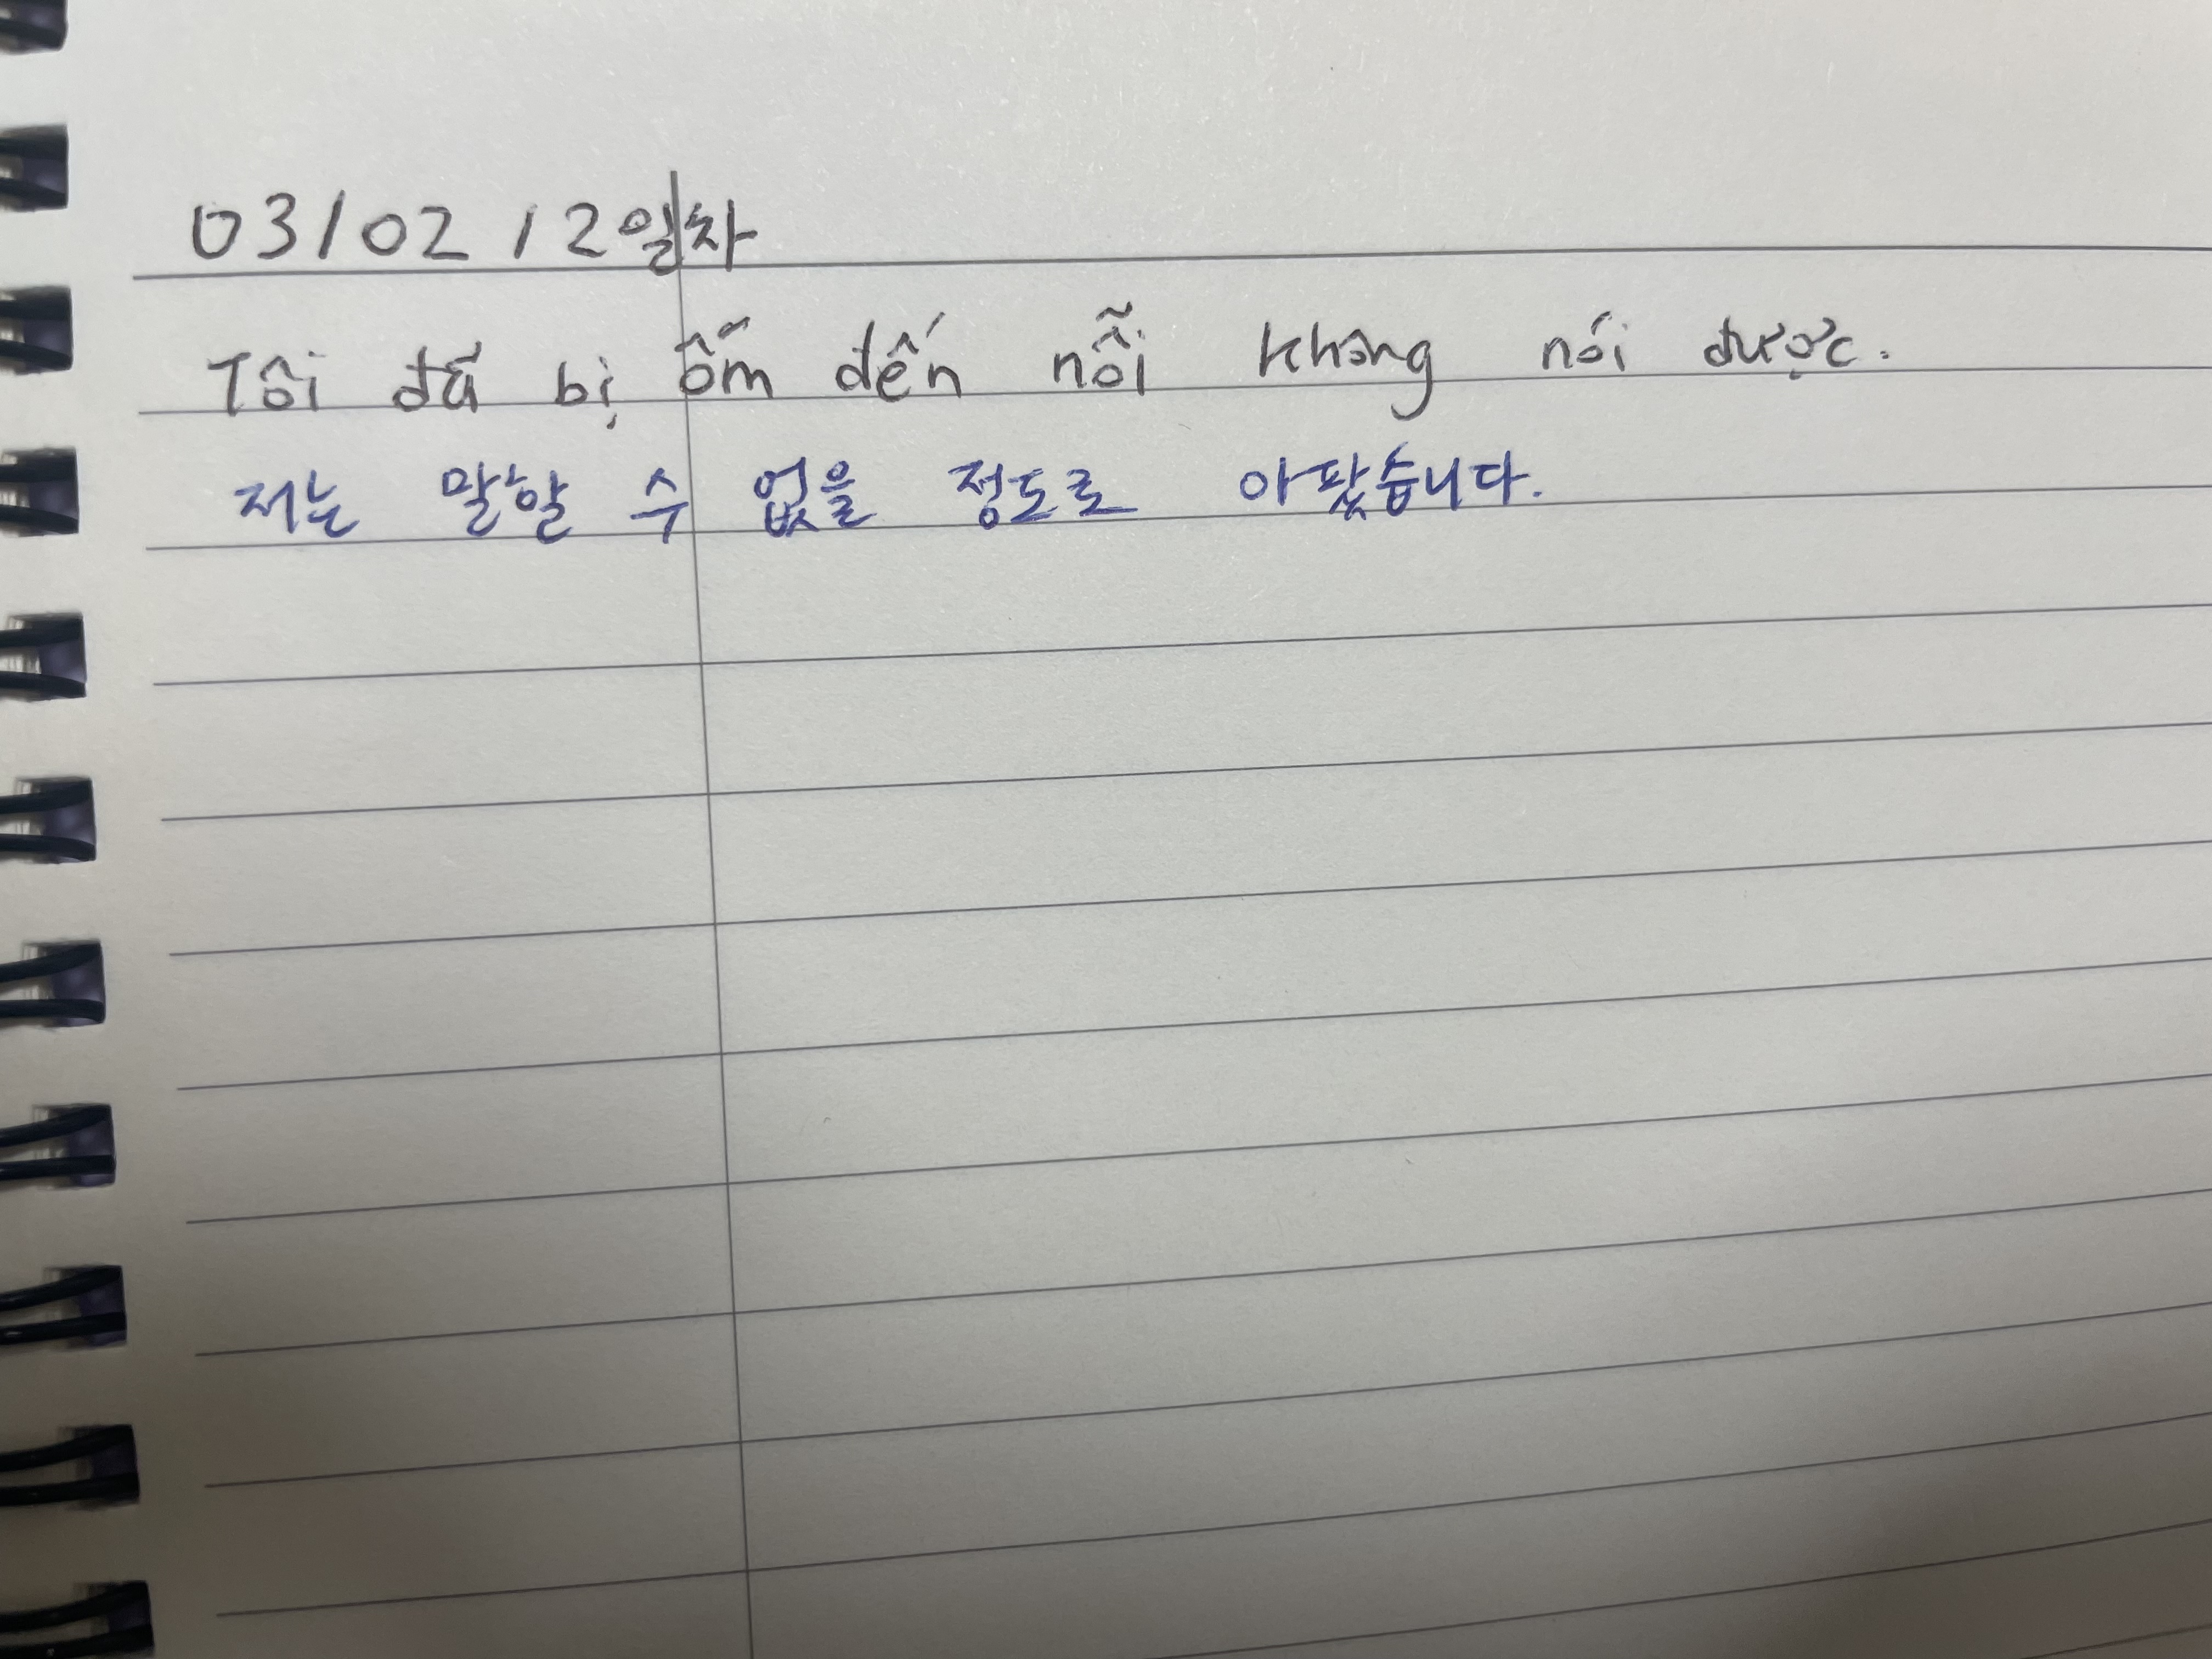 03/02 12일차
Tôi đã bị ốm đến nỗi không nói được.
저는 말할 수 없을 정도로 아팠습니다.